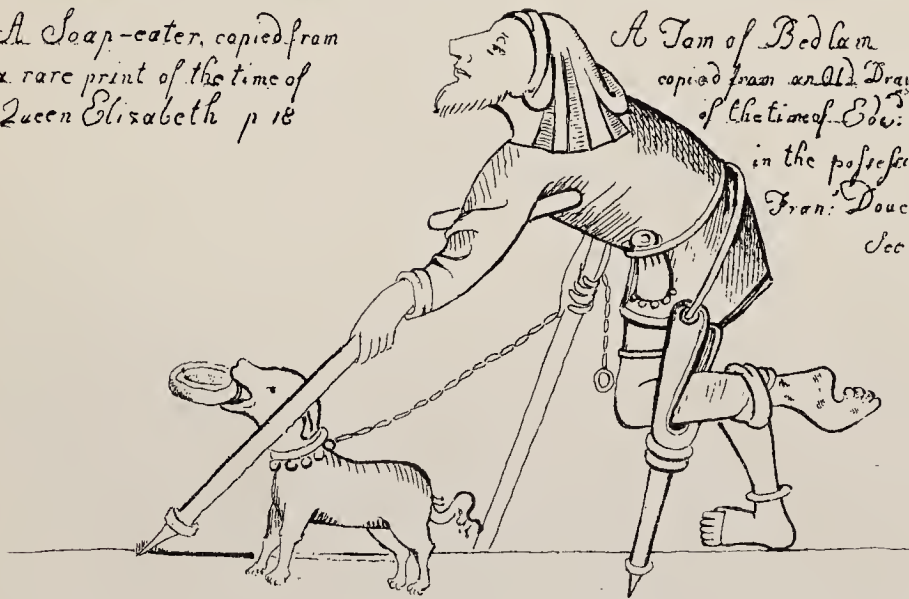 A Soap-eater, copied from
a rare print of the time of
Queen Elizabeth p 18
A Tom of Bedlam
copied from an Old
of the time of Edwd:
in the
Frans: Douce
See